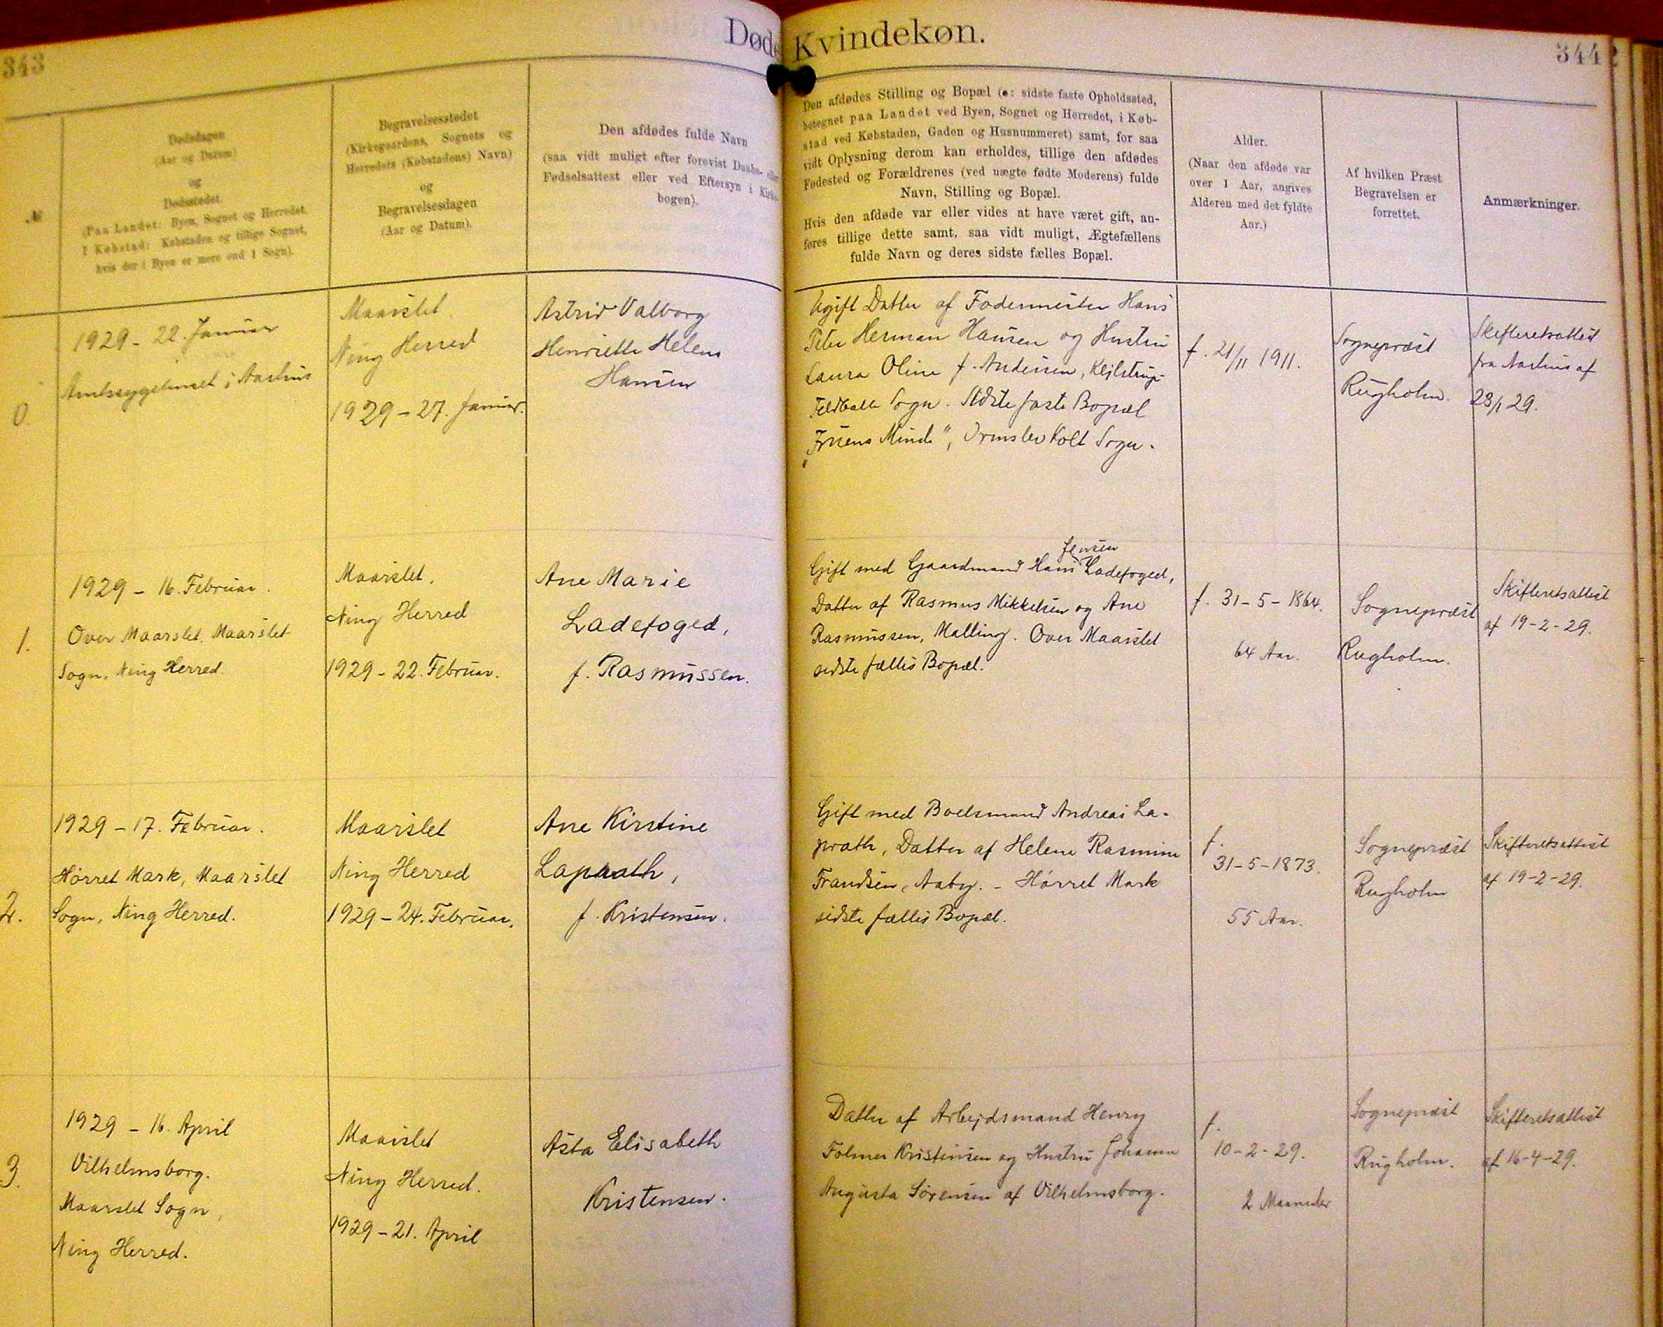 343
Døde Kvindekøn.
344
№
Dødsdagen
(Aar og Datum)
og
Dødsstedet.
(Paa Landet: Byen, Sognet og Herredet.
I Købstad: Købstaden og tillige Sognet,
hvis der i Byen er mere end 1 Sogn).
Begravelsesstedet
(Kirkegaardens, Sognets og
Herredets (Købstadens) Navn)
og
Begravelsesdagen
(Aar og Datum).
Den afdødes fulde Navn
(saa vidt muligt efter forevist Daabs- eller
Fødselsattest eller ved Eftersyn i Kirke-
bogen).
Den afdødes Stilling og Bopæl (ɔ: sidste faste Opholdssted,
betegnet paa Landet ved Byen, Sognet og Herredet, i Køb-
stad ved Købstaden, Gaden og Husnummeret) samt, for saa
vidt Oplysning derom kan erholdes, tillige den afdødes
Fødested og Forældrenes (ved uægte fødte Moderens) fulde
Navn, Stilling og Bopæl.
Hvis den afdøde var eller vides at have været gift, an-
føres tillige dette samt, saa vidt muligt, Ægtefællens
fulde Navn og deres sidste fælles Bopæl.
Alder.
(Naar den afdøde var
over 1 Aar, angives
Alderen med det fyldte
Aar.)
Af hvilken Præst
Begravelsen er
forrettet.
Anmærkninger.
0.
1929 - 22. Januar
Amtssygehuset i Aarhus
Maarslet.
Ning Herred
1929 - 27. Januar.
Astrid Valborg
Henriette Helene
Hansen
Ugift Datter af Fodermester Hans
Peter Herman Hansen og Hustru
Laura Oline f. Andersen, Kejlstrup-
Feldballe Sogn. Sidste faste Bopæl
"Fruens Minde", Ormslev Kolt Sogn.
f. 21/11 1911.
Sognepræst
Rugholm.
Skifteretsattest
fra Aarhus af
23/1 29.
1.
1929 - 16. Februar.
Over Maarslet, Maarslet
Sogn, Ning Herred.
Maarslet.
Ning Herred
1929 - 22. Februar.
Ane Marie
Ladefoged,
f. Rasmussen.
Jensen
Gift med Gaardmand Hans Ladefoged,
Datter af Rasmus Mikkelsen og Ane
Rasmussen, Malling. Over Maarslet
sidste fælles Bopæl.
f. 31-5-1864.
64 Aar.
Sognepræst
Rugholm.
Skifteretsattest
af 19-2-29.
2.
1929 - 17. Februar.
Hørret Mark, Maarslet
Sogn, Ning Herred.
Maarslet
Ning Herred
1929 - 24. Februar.
Ane Kirstine
Laprath,
f. Kristensen.
Gift med Boelsmand Andreas La-
prath, Datter af Helene Rasmine
Frandsen, Aaby. - Hørret Mark
sidste fælles Bopæl.
f.
31-5-1873.
55 Aar.
Sognepræst
Rugholm
Skifteretsattest
af 19-2-29.
3.
1929 - 16. April
Vilhelmsborg.
Maarslet Sogn,
Ning Herred.
Maarslet
Ning Herred.
1929 - 21. April
Asta Elisabeth
Kristensen.
Datter af Arbejdsmand Henry
Folmer Kristensen og Hustru Johanne
Augusta Sørensen af Vilhelmsborg.
f.
10-2-29.
2 Maaneder
Sognepræst
Rugholm.
Skifteretsattest
af 16-4-29.